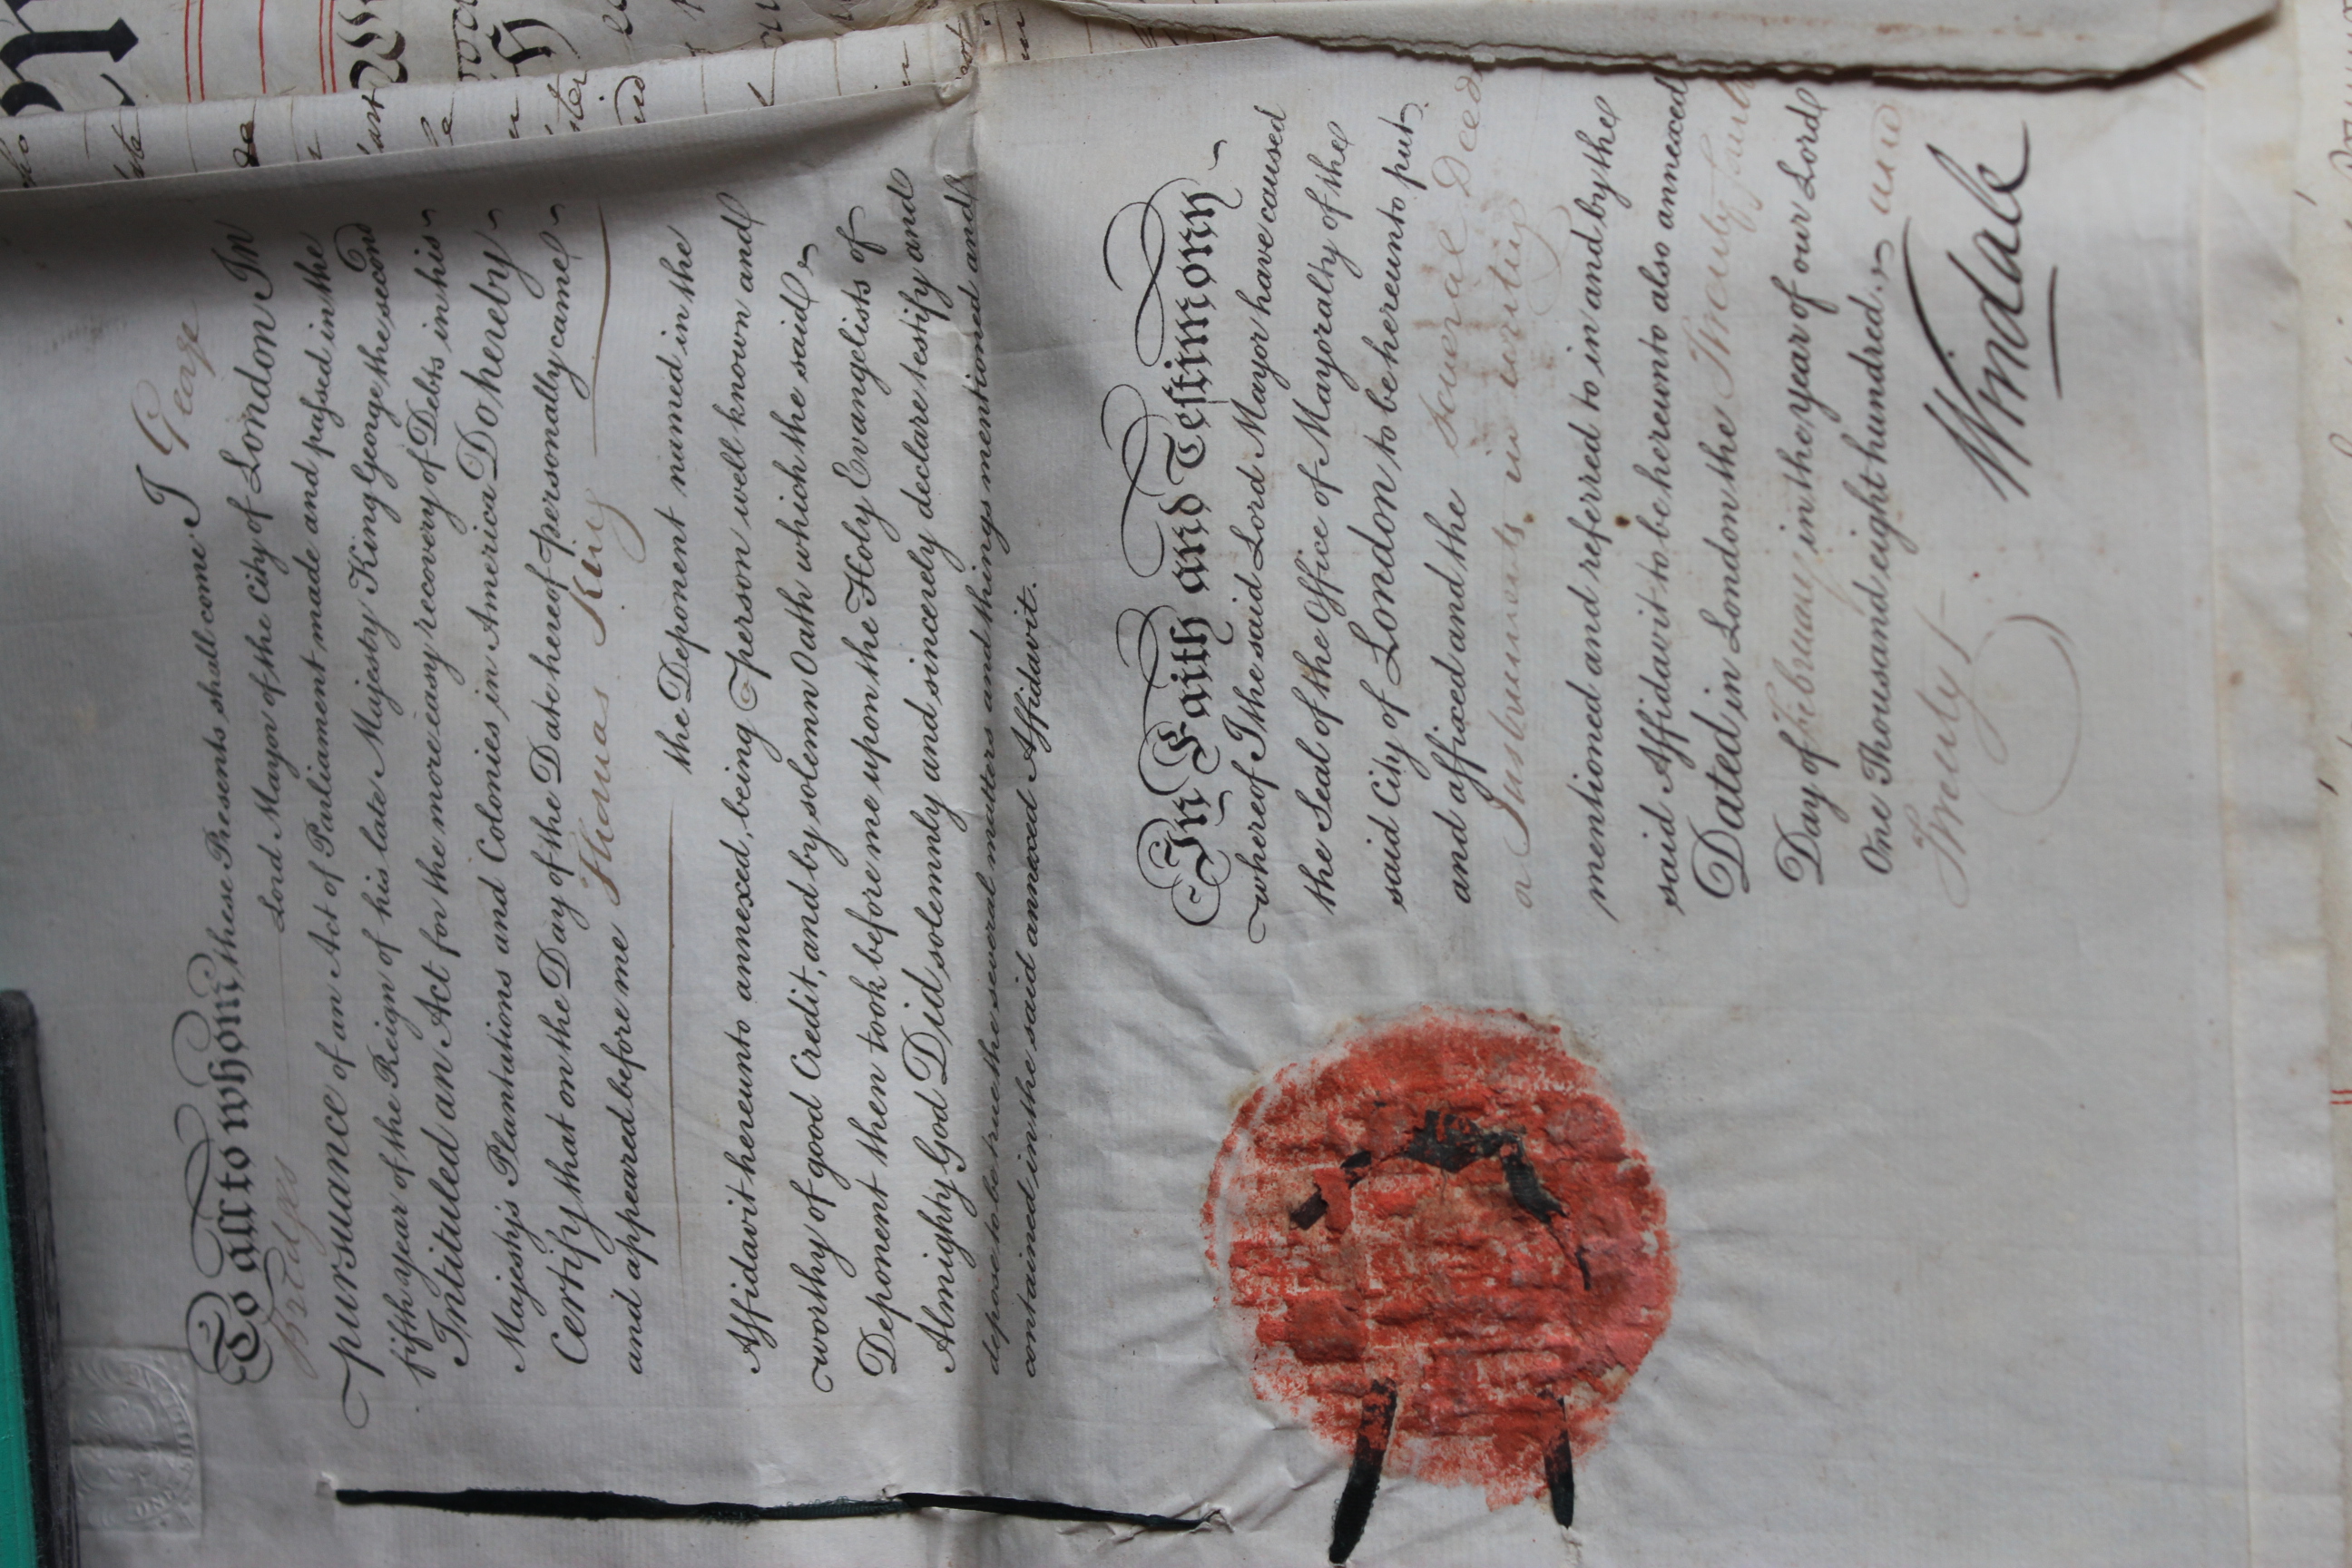 To all to whom these Presents shall come I George
Bridges Lord Mayor of the City of London In
pursuance of an Act of Parliament made and passed in the
fifth year of the Reign of his late Majesty King George the second
Intituled an Act for the more easy recovery of Debts in his
Majesty's Plantations and Colonies in America Do hereby
Certify that on the Day of the Date hereof personally came
and appeared before me Thomas King
the Deponent named in the
Affidavit hereunto annexed, being a person well known and
worthy of good Credit, and by solemn Oath which the said
Deponent then took before me upon the Holy Evangelists of
Almighty God Did solemnly and sincerely declare testify and
depose to be true the several matters and things mentioned and
contained in the said annexed Affidavit.
In Faith and Testimony
whereof I the said Lord Mayor have caused
the Seal of the Office of Mayoralty of the
said City of London to be hereunto put
and affixed and the several Deed
or Instruments in writing
mentioned and referred to in and by the
said Affidavit to be hereunto also annexed
Dated in London the Twenty fourth
Day of February in the year of our Lord
One Thousand eight hundred and
Twenty
Windale